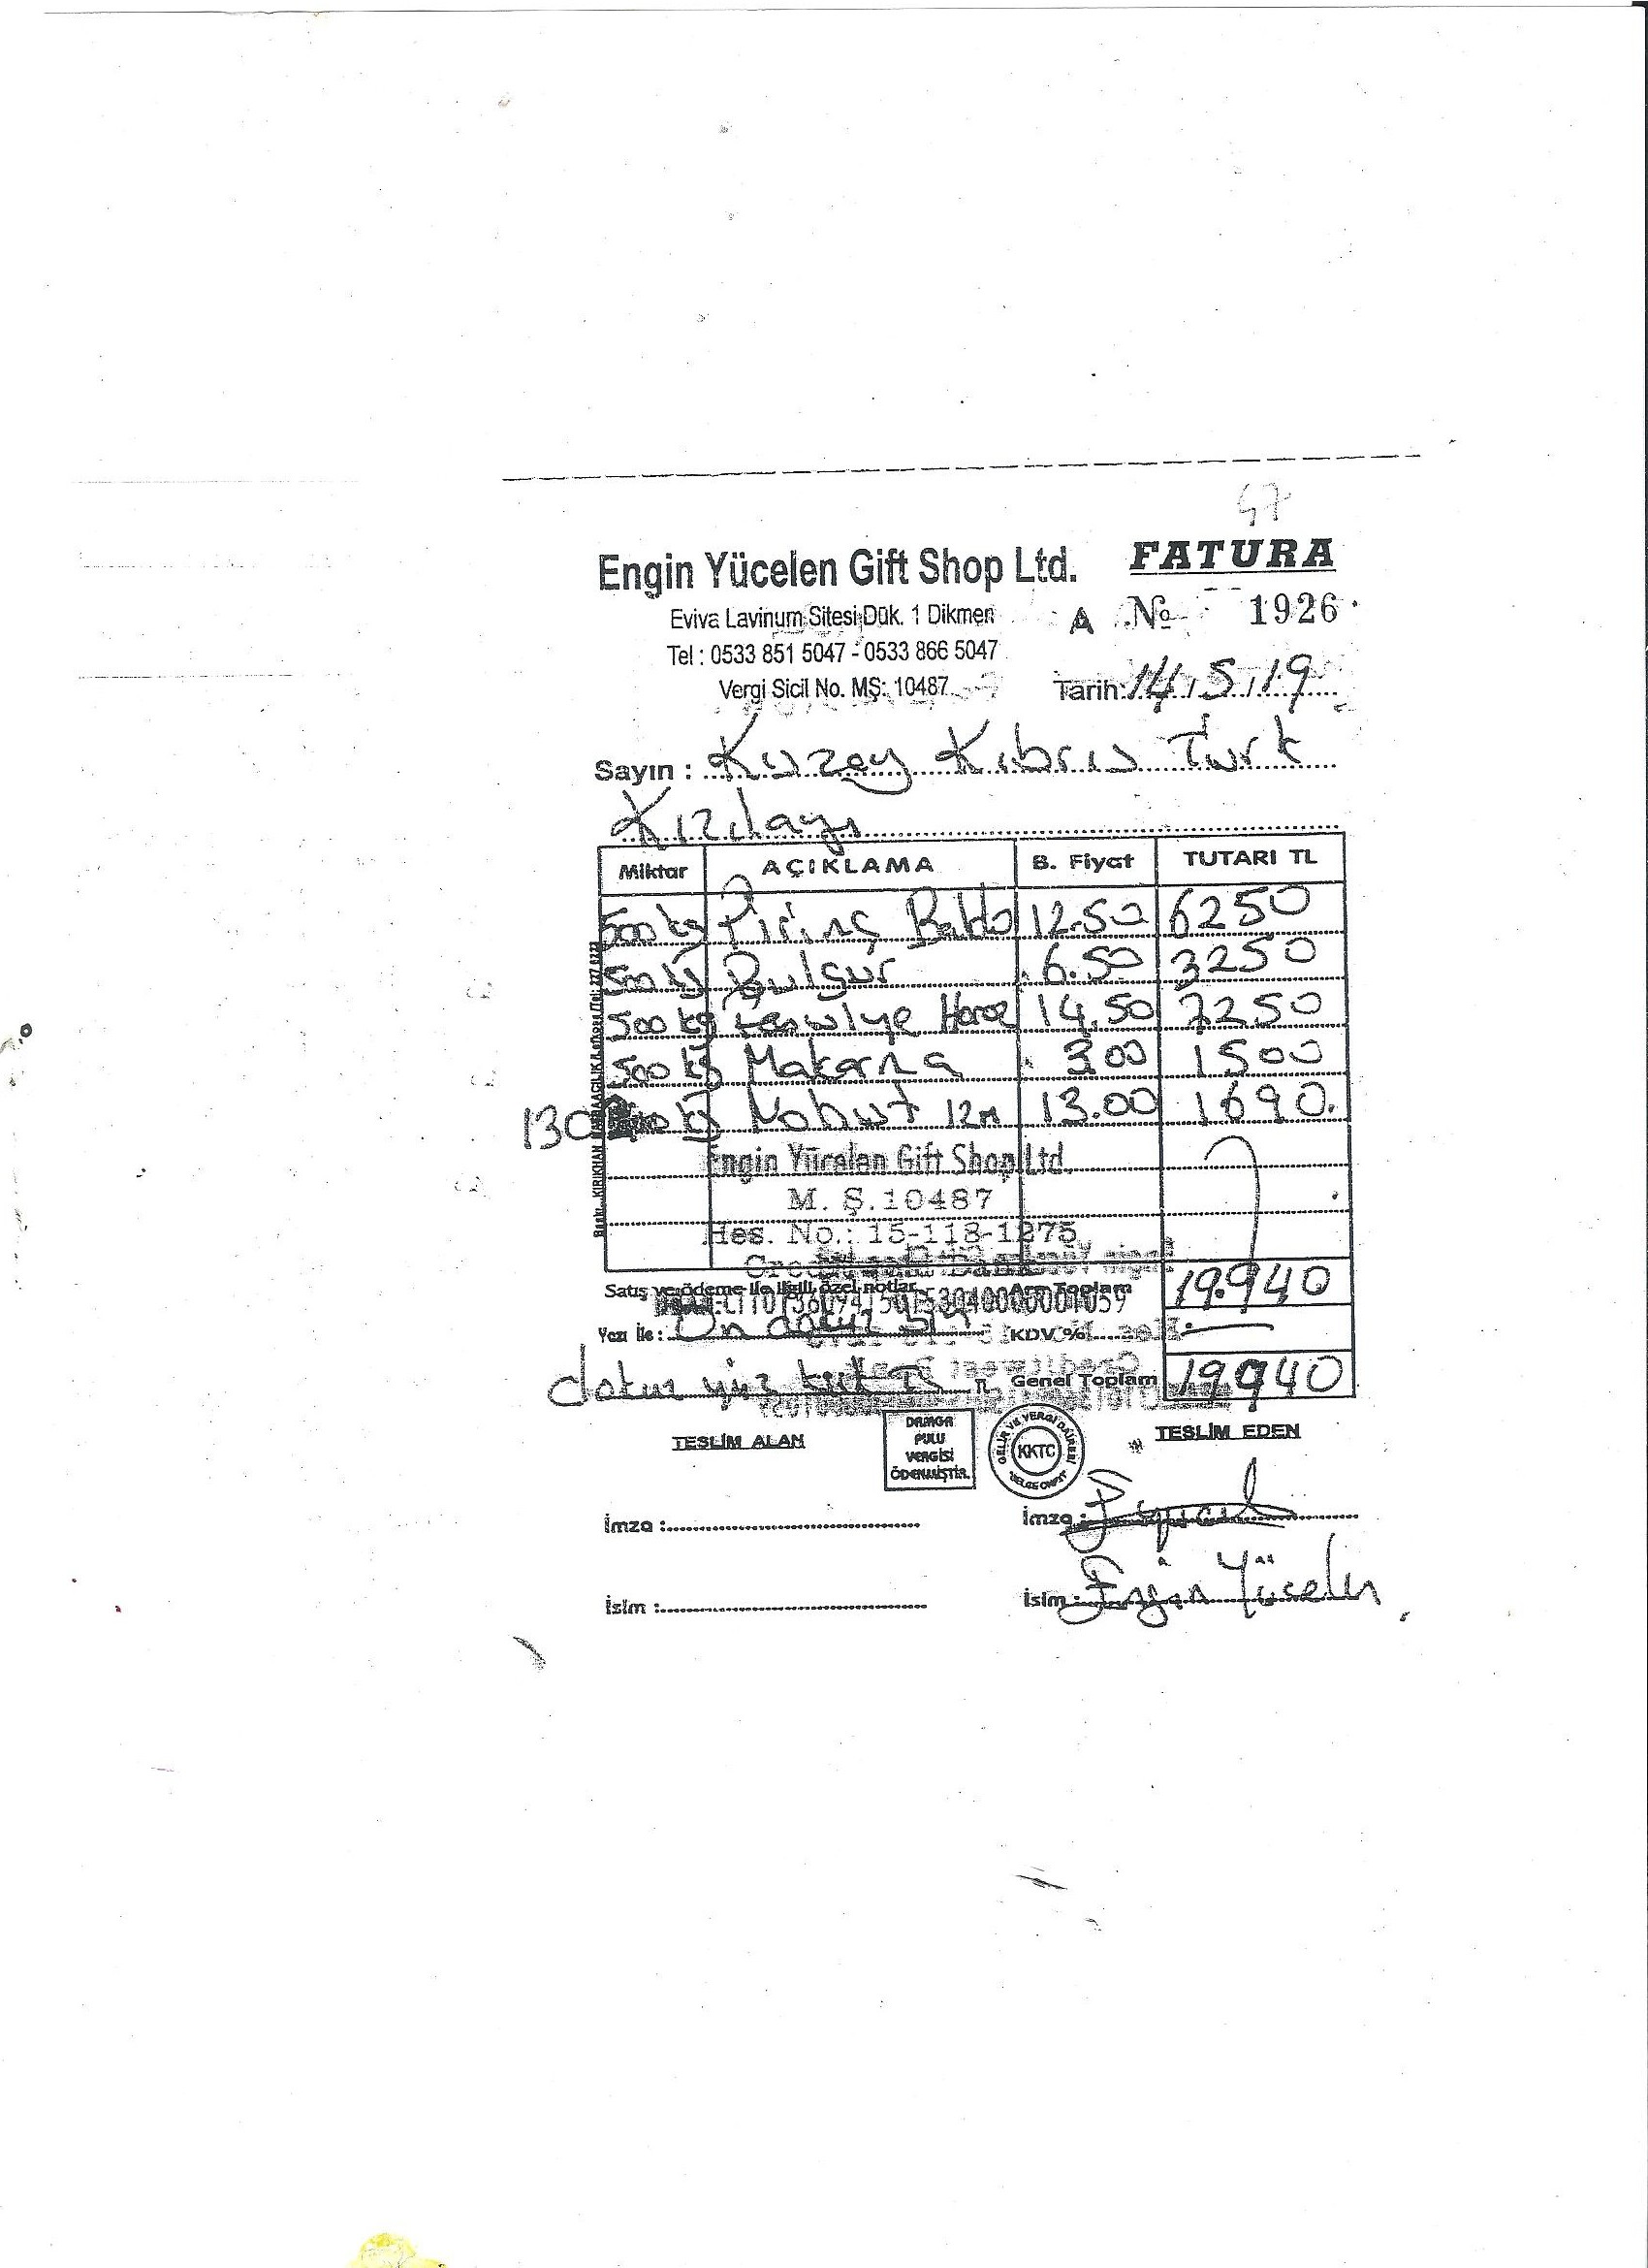 47
Engin Yücelen Gift Shop Ltd. FATURA
Eviva Lavinum Sitesi Dük. 1 Dikmen A No 1926
Tel : 0533 851 5047 - 0533 866 5047
Vergi Sicil No. MŞ: 10487 Tarih: 14/5/19
Sayın : Kuzey Kıbrıs Türk
Kızılayı
Miktar AÇIKLAMA B. Fiyat TUTARI TL
500 kg Pirinç Baldo 12.50 6250
500 kg Bulgur 6.50 3250
500 kg Horoz 14.50 7250
500 kg Makarna 3.00 1500
130 kg Nohut 12m 13.00 1690.
Engin Yücelen Gift Shop Ltd.
M. Ş.10487
Hes. No.: 15-118-1275
Satış ve ödeme ile ilgili özel notlar Ara Toplam 19.940
Yazı İle : On dokuz bin KDV %
dokuz yüz kırk TL TL Genel Toplam 19940
TESLİM ALAN
DAMGA
PULU
VERGİSİ
ÖDENMİŞTİR.
GELİR VE VERGİ DAİRESİ
KKTC
TESLİM EDEN
İmza : İmza :
İsim : İsim : Engin Yücelen